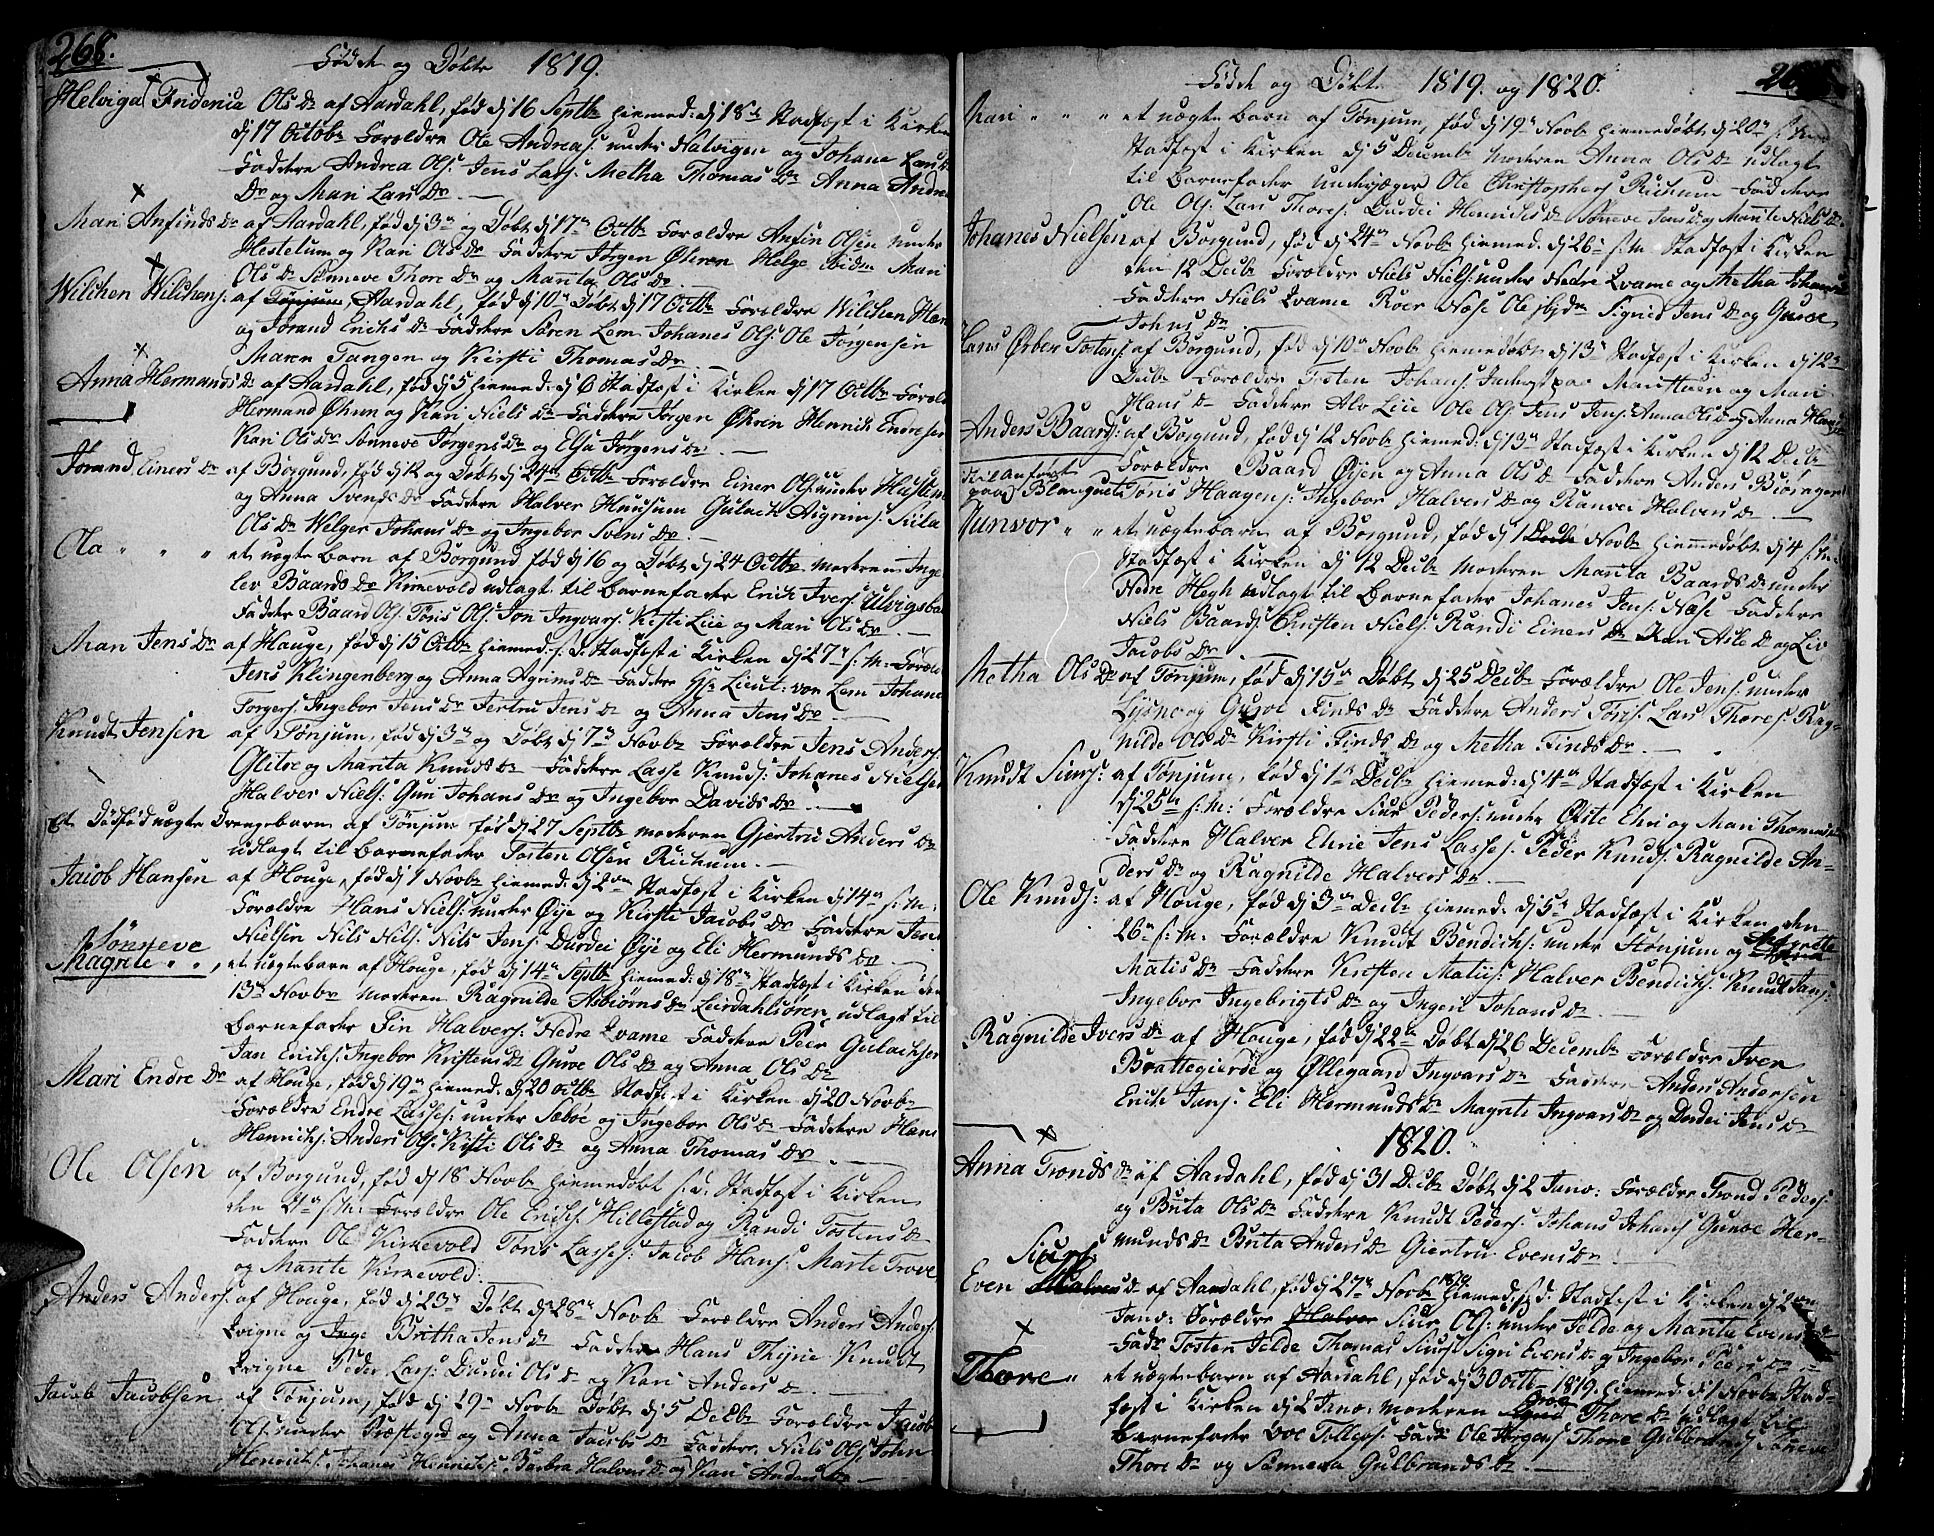 268.
Fødde og Døbte 1819.
Helviga Fridenia Ols Dr af Aardahl, fød dj 16 Septb hiemed: dj 18de Stadfæst i Kirken
dj 17 Octobr Forældre Ole Andreas: under Halvigen og Johane Lars Dr
Faddere Andrea Ols: Jens Lars: Metha Thomas Dr Anna Andre
Dr og Mari Lars Dr
Mari Anfinds Dr af Aardahl, fød dj 3de og Døbt dj 17de Octbr Forældre Anfin Olsen under
Hestetun og Kari Ols Dr Faddere Jørgen Øhren Helge ibidm Mari
Ols Dr Sønneve Thore Dr og Marita Ols Dr
Wilchen Wilchens: af Aardahl, fød dj 10de Døbt dj 17 Octbr Forældre Wilchen Hæn
og Jørand Erichs Dr Faddere Søren Lem Johanes Ols: Ole Jørgensen
Maren Tangen og Kirsti Thomas Dr
Anna Hermands Dr af Aardahl, fød dj 5 hiemed: dj 6 Stadfæst i Kirken dj 17 Octbr Foræld
Hermand Øhren og Kari Niels Dr Faddere Jørgen Øhren Henrik Endresen
Kari Ols Dr Sønneve Jørgens Dr og Elsa Jørgens Dr
Jørand Einers Dr af Borgund, fød dj 12 og Døbt dj 24de Octbr Forældre Einer Ols: under Husum
og Anna Svends Dr Faddere Halver Huusum Gulach Aigrims: Siila
Ols Dr Welger Johans Dr og Ingebor Svens Dr
Ola " " " et uægte barn af Borgund fød dj 16 og Døbt dj 24 Octbr modren Inge
lev Baards Dr Kirkevold udlagt til barnefader Erich Ivers: Ulvigsba
Faddere Baard Ols: Tønis Ols: Jon Ingvars: Kisti Liie og Mari Ols Dr
Mari Jens Dr af Houge, fød dj 15 Octbr hiemed: s: d: Stadfæst i Kirken dj 27de s: M: Foræld
Jens Klingenberg og Anna Agrims Dr Faddere Hr Lieut: von Lem Johane
Torgers: Ingebor Jens Dr Jertru Jens Dr og Anna Jens Dr
Knudt Jensen af Tønjum, fød dj 3de og Døbt dj 7de Novbr Forældre Jens Anders:
Glitre og Marita Knuds Dr Faddere Lasse Knuds: Johanes Nielsen
Halver Niels: Gun Johans Dr og Ingebor Davids Dr
Et Dødfød uægte Drengebarn af Tønjum fød dj 27 Septbr modren Gjertru Anders Dr
udlagt til barnefader Tosten Olsen Richum.
Jacob Hansen af Houge, fød dj 1 Novbr hiemed: dj 2den Stadfæst i Kirken dj 14de s: M:
Forældre Hans Niels: under Øye og Kirsti Jacobs Dr Faddere Jens
Nielsen Nils Nils: Nils Jens: Durdei Øye og Eli Hermunds Dr
Sønneve
Magrite " ", et uægte barn af Houge, fød dj 14de Septbr hiemed: dj 18de Stadfæst i Kirken den
13de Novbr modren Ragnilde Asbiørns Dr Leirdahlsøren udlagt til
Barnefader Fin Halvers: Nedre Qvame Faddere Peer Gulachsen
Jan Erichs: Ingebor Kristens Dr Guroe Ols Dr og Anna Ols Dr
Mari Endre Dr af Houge, fød dj 19de hiemed: dj 20 Octbr Stadfæst i Kirken dj 20 Novbr
Forældre Endre Lasses: under Sæbøe og Ingebor Ols Dr Faddere Hans
Henrichs: Anders Ols: Kisti Ols Dr og Anna Thomas Dr
Ole Olsen af Borgund, fød dj 18 Novbr hiemedøbt s: d: Stadfæst i Kirken
den 21de s: M: Forældre Ole Erichs: Hillestad og Randi Tostens Dr
Faddere Ole Kirkevold Tøns Lasses: Jacob Hans: Marte Trove
og Marite Kirkevold.
Anders Anders: af Houge, fød dj 23de Døbt dj 28de Novbr Forældre Anders Anders:
Qvigne og Inge Britha Jens Dr Faddere Hans Thiyne Knudt
Qvigne Peder Lars: Durdei Ols Dr og Kari Anders Dr
Jacob Jacobsen af Tønjum, fød dj 29de Novbr Døbt dj 5 Decbr Forældre Jacob
Ols: under Præstegd og Anna Jacobs Dr Faddere Niels Ols: John
Henrichs: Johanes Henrichs: Barbra Halvers Dr og Kari Anders Dr
Fødde og Døbte 1819 og 1820.
Mari " " " et uægte barn af Tønjum, fød dj 19de Novbr hiemedøbt dj 20de s: M:
Stadfæst i Kirken dj 5 Decembr modren Anna Ols Dr udlagt
til Barnefader Underjæger Ole Christophers: Richum Faddere
Ole Ols: Lars Thores: Durdei Henrichs Dr Sønneve Jens Dr og Marite Niels Dr
Johanes Nielsen af Borgund, fød dj 24de Novbr hiemed: dj 26de s: M: Stadfæst i Kirken
den 12 Decbr Forældre Niels Niels: under Nedre Qvame og Metha Johans
Faddere Niels Qvame Roer Næse Ole ibidm Signed Jens Dr og Guroe
Johns Dr
Lars Ørben Tostens: af Borgund, fød dj 10de Novbr hiemedøbt dj 13de Stadfæst i Kirken dj 12te
Decbr Forældre Tosten Johans: paa Maristuen og Mari
Hans Dr Faddere Alv Liie Ole Ols: Jens Jens: Anna Ols Dr og Anna Hans
Anders Baards: af Borgund, fød dj 12 Novbr hiemed: dj 13de Stadfæst i Kirken dj 12 Decbr
Forældre Baard Øyen og Anna Ols Dr Faddere Anders Biørager
Tønis Haagens: Ingebor Halvers Dr og Ranvei Halvers Dr
anført
paa Blanquet
Gunvor " " et uægte barn af Borgund, fød dj 1 Novbr hiemmedøbt dj 4 s: M:
Stadfæst i Kirken dj 12 Decbr modren Marita Baards Dr under
Nedre Hegh udlagt til barnefader Johanes Jens: Næse Faddere
Niels Baards: Christen Niels: Randi Einers Dr Kari Asle Dr og Liv
Jacobs Dr
Metha Ols Dr af Tønjum, fød dj 15de Døbt dj 25 Decbr Forældre Ole Jens: under
Lysne og Guroe Finds Dr Faddere Anders Tøns: Lars Thores: Rag-
nilde Ols Dr Kirsti Finds Dr og Metha Finds Dr
Knudt Siurs: af Tønjum, fød dj 1de Decbr hiemed: dj 4de Stadfæst i Kirken
dj 25de s: M: Forældre Siur Peders: under Ehri og Mari Thomas
Faddere Halver Ehrie Jens Lasses: Peder Knuds: Ragnilde An-
ders Dr og Ragnilde Halvers Dr
Ole Knuds: af Houge, fød dj 3de Decbr hiemed: dj 5de Stadfæst i Kirken den
26de s: M: Forældre Knudt Bendichs: under Stønjum og
Matis Dr Faddere Kristen Matiis: Halver Bendichs: Knudt Jans:
Ingebor Ingebrigts Dr og Ingeri Johans Dr
Ragnilde Ivers Dr af Houge, fød dj 22de Døbt dj 26 Decembr Forældre Iver
Brattegierde og Øllegaard Ingvars Dr Faddere Anders Andersen
Erich Jans: Eli Hermunds Dr Magrite Ingvars Dr og Dordei Jens Dr
1820.
Anna Tronds Dr af Aardahl, fød dj 31 Decbr Døbt dj 2 Janv: Forældre Trond Peders:
og Brita Ols Dr Faddere Knudt Peders: Johans Johans: Gunoe Her-
munds Dr Brita Anders Dr Giertru Evens Dr
Siurs:
Even af Aardahl, fød dj 27de Novbr 1819 hiemed: s: d: Stadfæst i Kirken dj 2den
Janv: Forældre Halver Siur Ols: under Jelde og Marite Evens Dr
Faddr Tosten Jelde Thomas Siurs: Sigri Evens Dr og Ingebor Peers Dr
Thore " et uægte barn af Aardahl, fød dj 30 Octbr 1819. hiemed: dj 1 Novbr Stad-
fæst i Kirken dj 2 Janv: modren Thore Dr udlagt til
barnefader Boe Tollefs: Faddr Ole Torgers: Thore Gulbrands: Sønneve
Thore Dr og Sønneva Gulbrands Dr